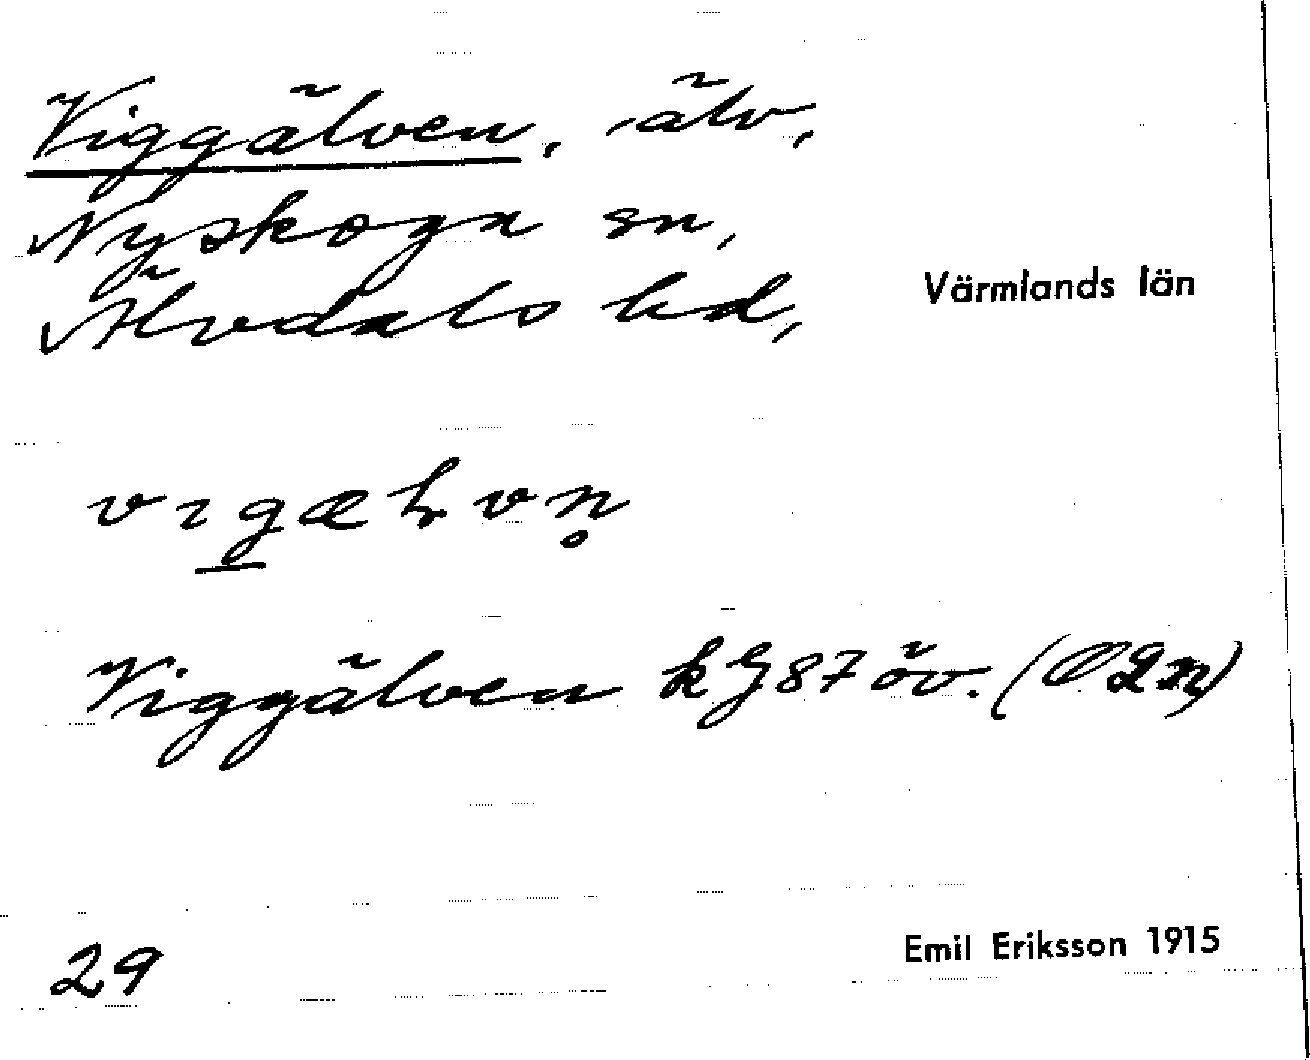 Viggälven, älv,
Nyskoga sn,
Älvdals hd,
Värmlands län
Viggälven kG87öv.
29
Emil Eriksson 1915